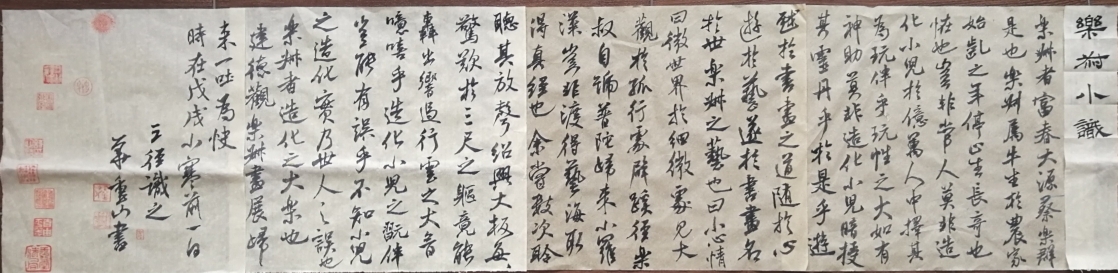 樂瀕小識
樂瀕者富春大源蔡樂群
是也樂瀕属牛生於農家
始齔之年停止生長奇也
怪也豈非常人莫非造
化小兒於億萬人中擇其
為玩伴乎玩性之大如有
神助莫非造化小兒暗授
其靈丹乎於是乎遊
於書畫之道隨於心
遊於藝遂於書畫名
於世樂瀕之藝也曰小心情
曰微世界於細微處見大
觀於孤行處辟蹊徑樂
叔自號普陀歸來小羅
漢豈非渡得藝海取
得真經也余嘗数次聆
聽其放聲紹興大板每
驚歎於三尺之軀竟能
轟出響遏行雲之大音
噫嘻乎造化小兒之玩伴
豈能有誤乎不知小兒
之造化實乃世人之誤也
樂瀕者造化之大樂也
建德觀樂瀕書畫展歸
來一吐為快
時在戊戌小寒前一日
三徑識之
華重山書